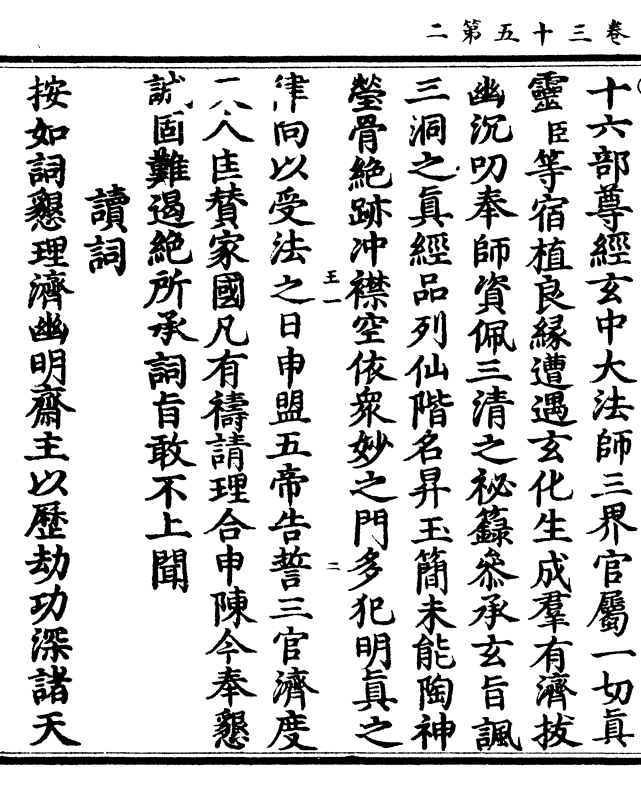 卷三十五第二
十六部尊經玄中大法師三界官屬一切眞
靈臣等宿植良緣遭遇玄化生成羣有濟拔
幽沉叨奉師資佩三清之祕籙叅承玄旨諷
三洞之眞經品列仙階名昇玉簡未能陶神
瑩骨絶跡冲襟空依衆妙之門多犯明眞之
王一
二
律向以受法之日申盟五帝告誓三官濟度
人人匡賛家國凡有禱請理合申陳今奉懇
誠固難遏絶所承詞旨敢不上聞
讀詞
按如詞懇理濟幽明齋主以歷劫功深諸天